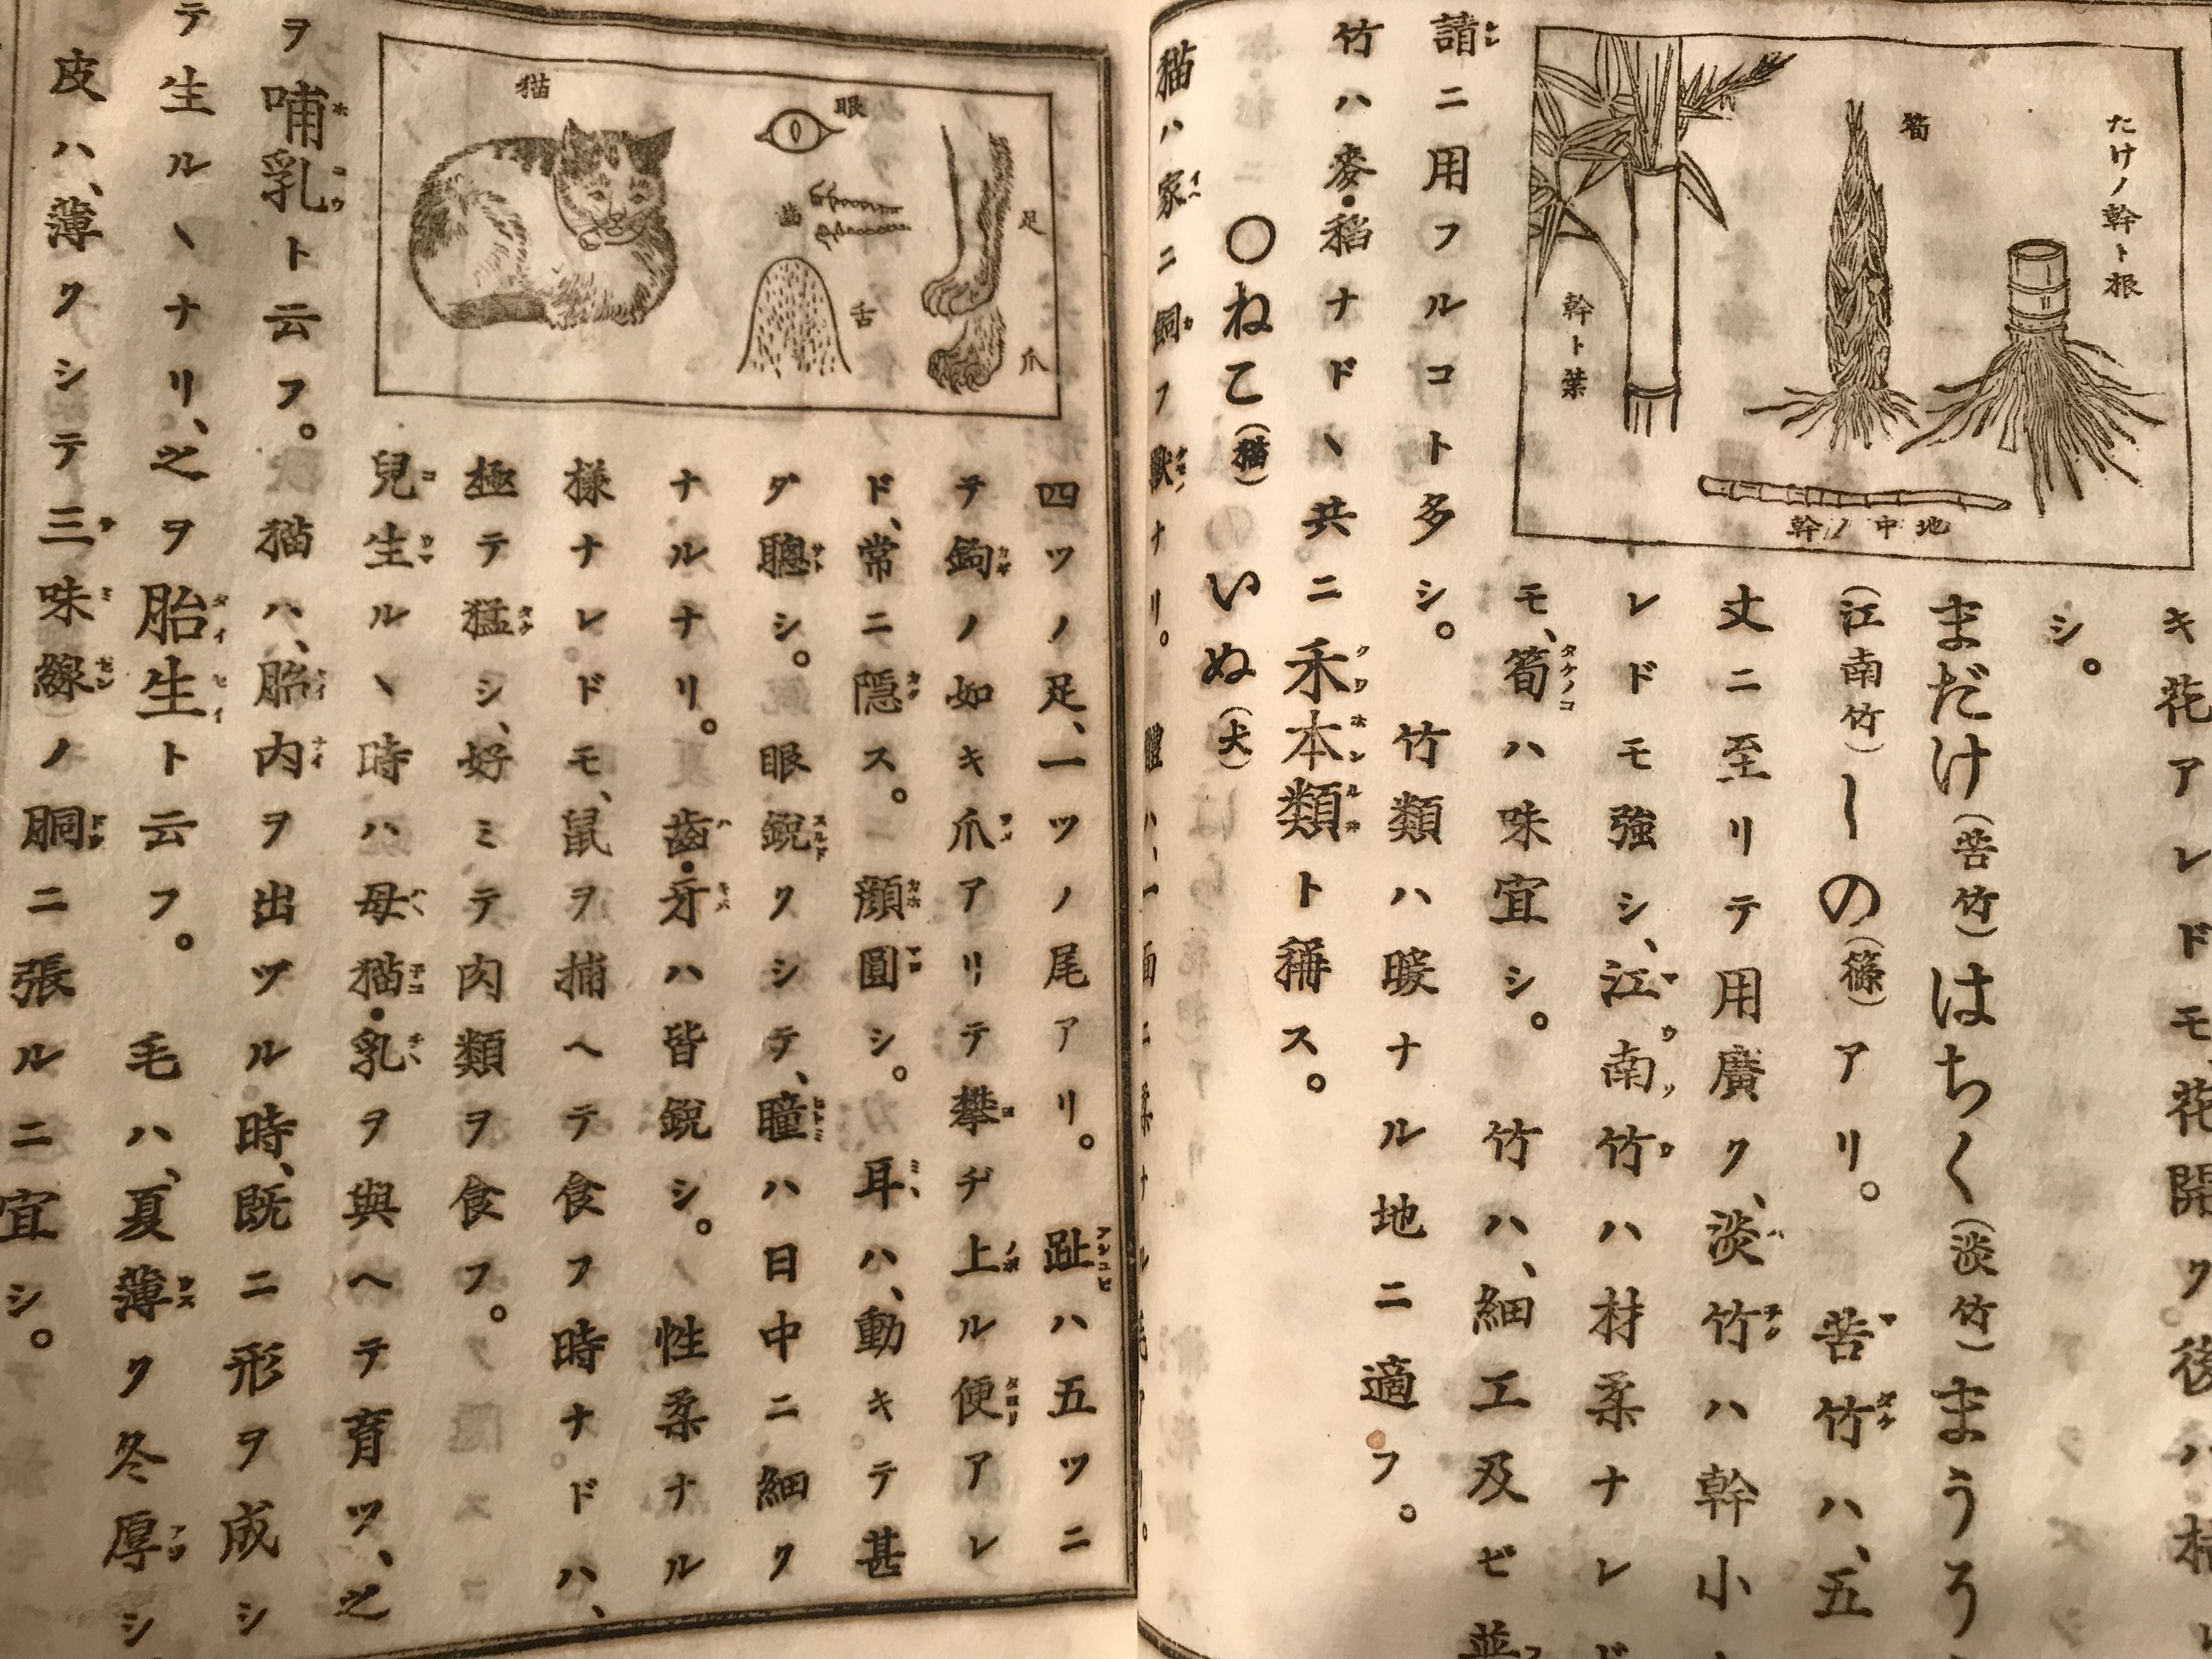 キ花アレドモ、花開ク後ハ枯
シ。
まだけ(苦竹)はちく(淡竹)まうろ
(江南竹)しの(篠)アリ。苦竹ハ、五
丈ニ至リテ用廣ク、淡竹ハ幹小
レドモ強シ、江南竹ハ材柔ナレド
モ、筍ハ味宜シ。竹ハ、細工及ビ普
請ニ用フルコト多シ。竹類ハ暖ナル地ニ適フ。
竹ハ麥・稻ナドヽ共ニ禾本類ト稱ス。
たけノ幹ト根
筍
幹ト葉
地中ノ幹
〇ねこ(猫)いぬ(犬)
猫ハ家ニ飼フ獸ナリ。
四ツノ足、一ツノ尾アリ。趾ハ五ツニ
テ鉤ノ如キ爪アリテ攀ヂ上ル便アレ
ド、常ニ隱ス。顔圓シ。耳ハ、動キテ甚
ダ聰シ。眼鋭クシテ、瞳ハ日中ニ細ク
ナルナリ。齒・牙ハ皆鋭シ。性柔ナル
樣ナレドモ、鼠ヲ捕ヘテ食フ時ナドハ、
極テ猛シ、好ミテ肉類ヲ食フ。
兒生ルヽ時ハ母猫・乳ヲ與ヘテ育ツ、之
ヲ哺乳ト云フ。猫ハ、胎内ヲ出ヅル時、既ニ形ヲ成シ
テ生ルヽナリ、之ヲ胎生ト云フ。毛ハ、夏薄ク冬厚シ
皮ハ、薄クシテ三味線ノ胴ニ張ルニ宜シ。
猫
眼
齒
舌
足
爪